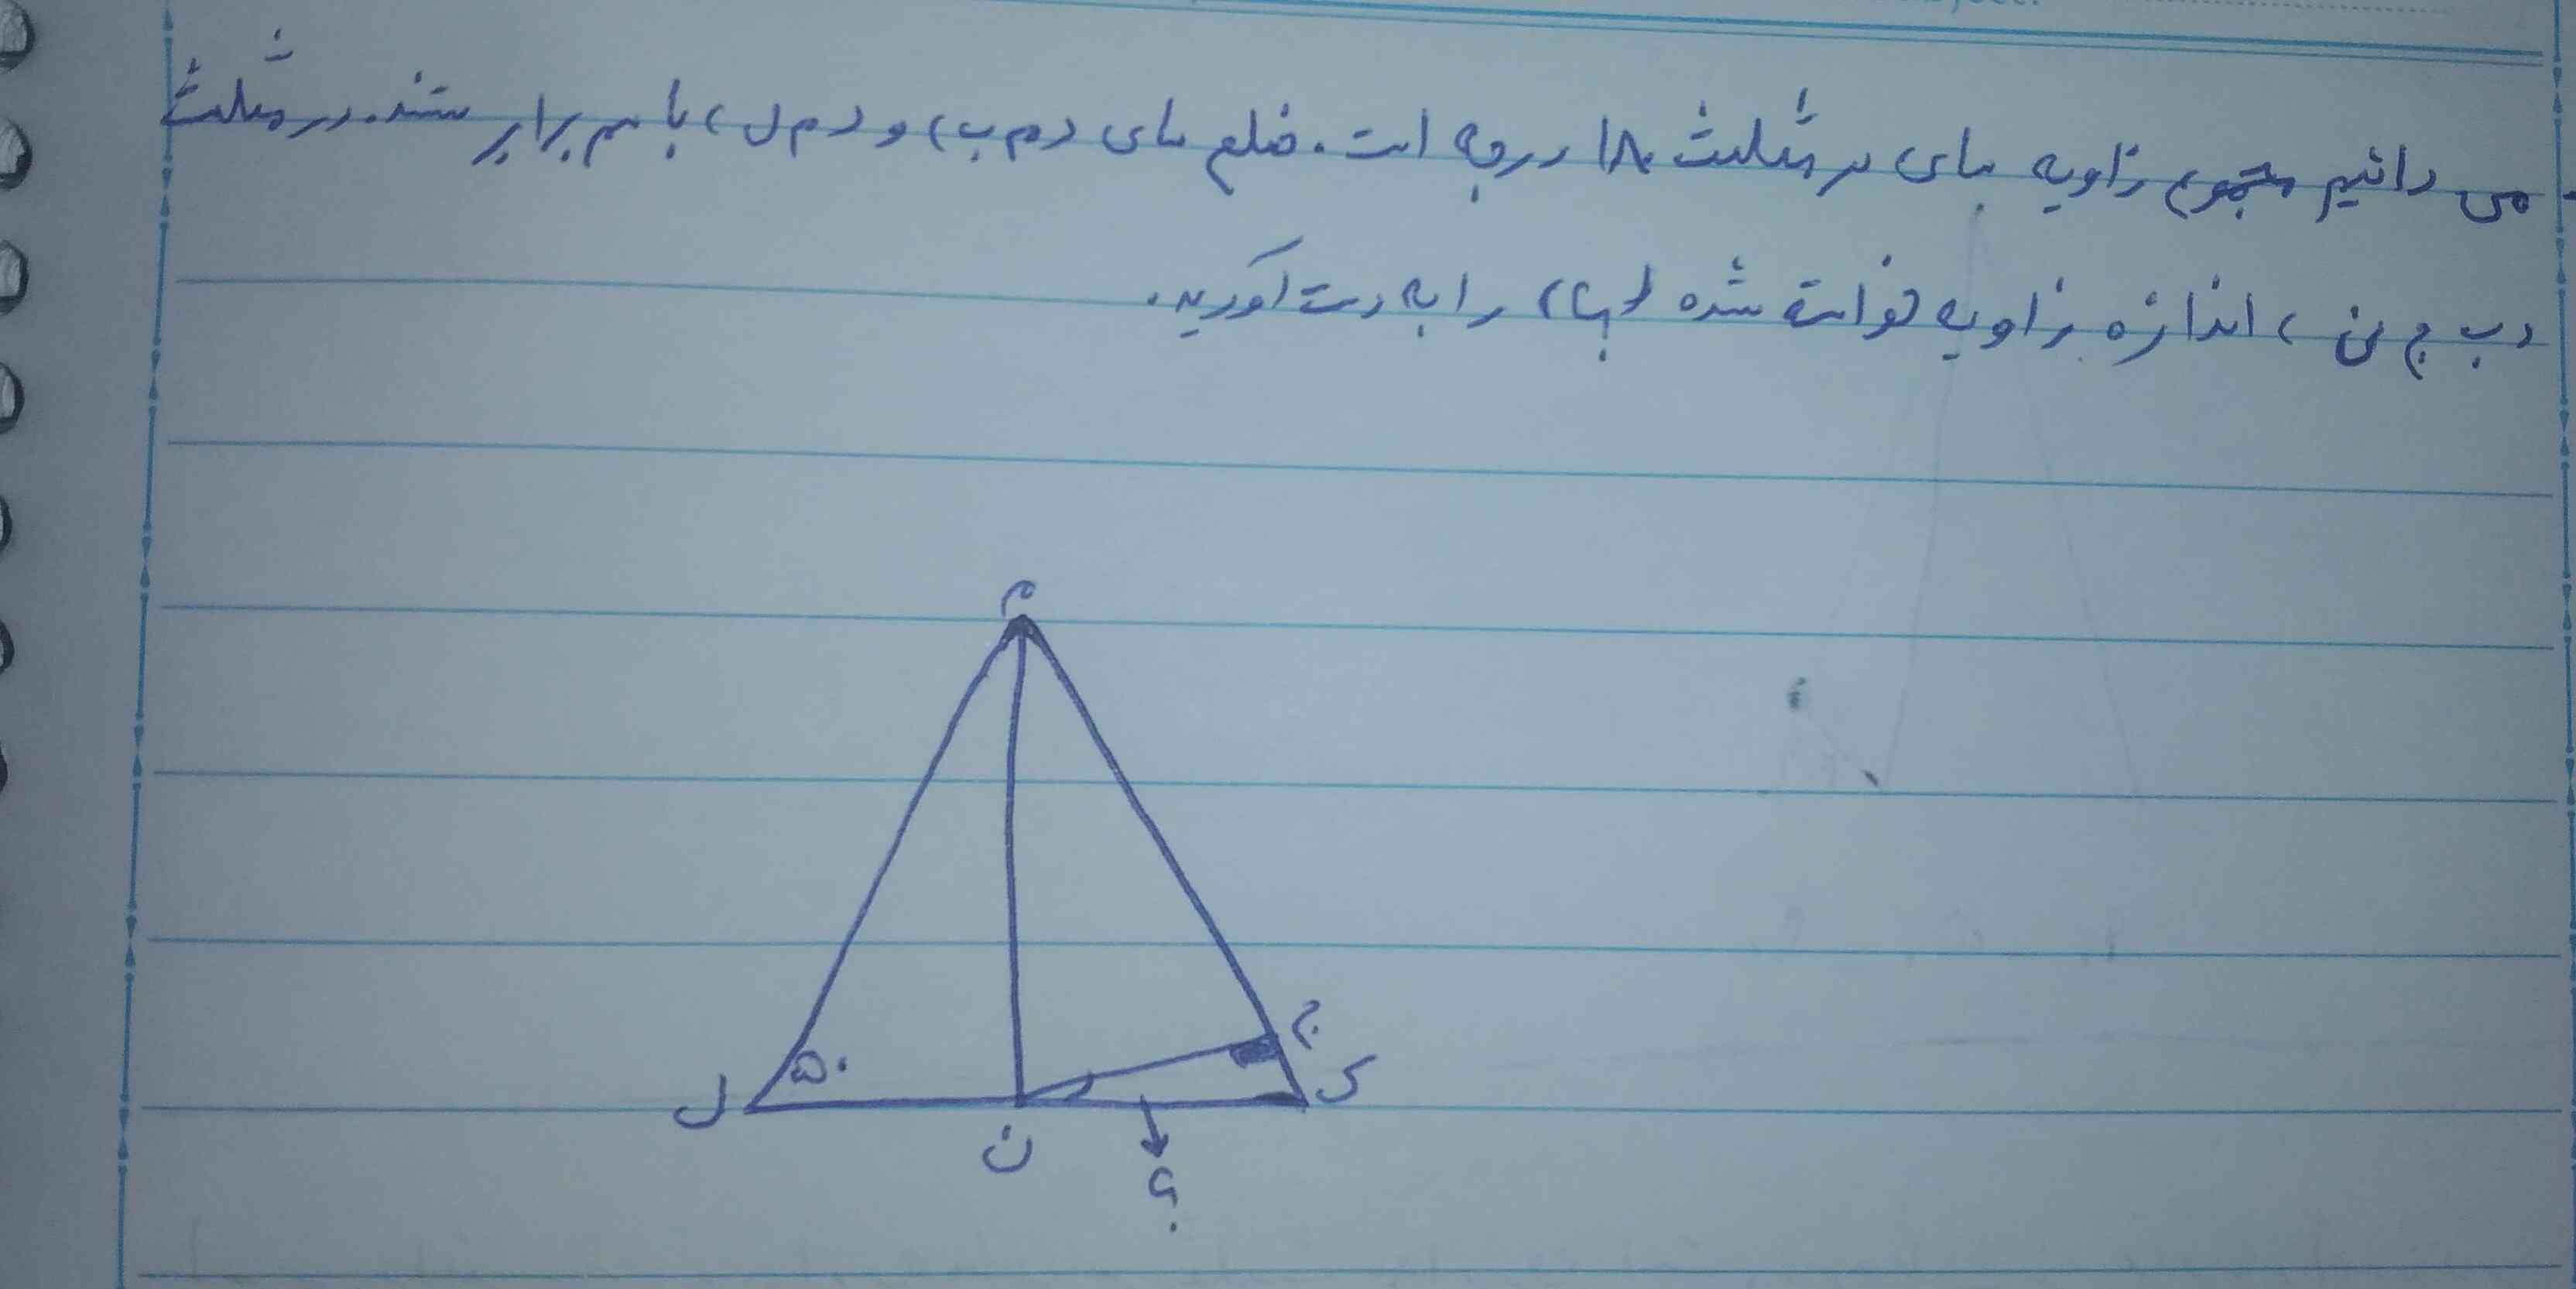 می دانیم مجموع زاویه های هر مثلث ۱۸۰ درجه است. ضلع های (م ب) و (م ل) با هم برابر هستند. در مثلث
(ب ج ن) اندازه زاویه خواسته شده (؟) را به دست آورید.
م
ج
۵۰
ل
ن
؟